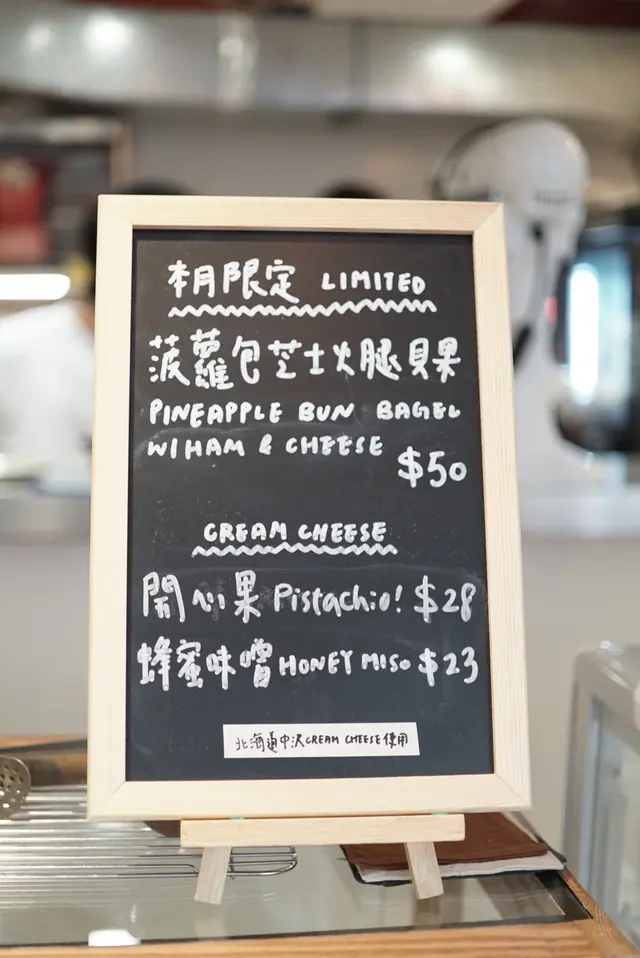 本月限定 LIMITED
菠蘿包芝士火腿貝果
PINEAPPLE BUN BAGEL
W/ HAM & CHEESE
$50
CREAM CHEESE
開心果 Pistachio! $28
蜂蜜味噌 HONEY MISO $23
北海道中沢CREAM CHEESE使用